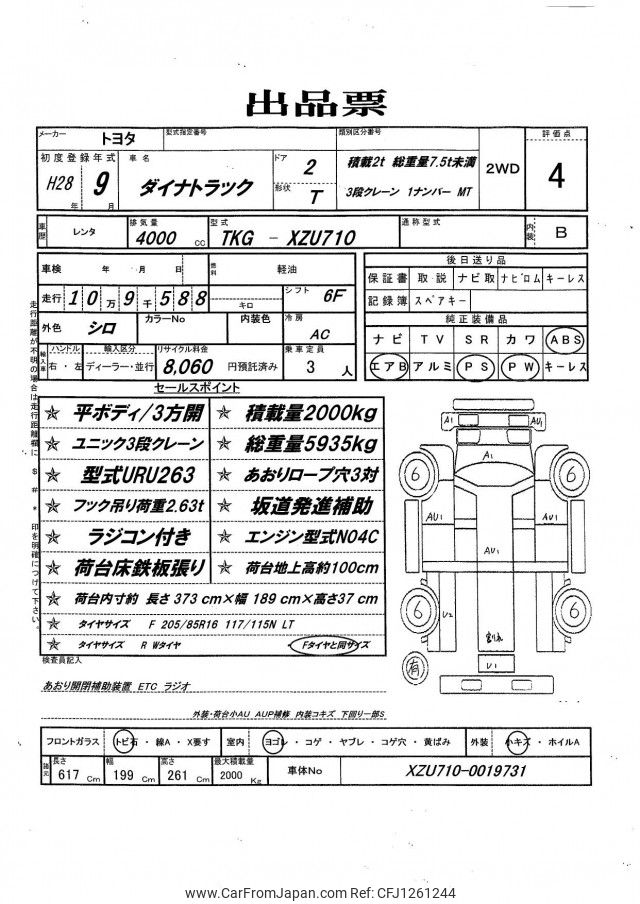 出品票
メーカー トヨタ 型式指定番号 類別区分番号 評価点
初度登録年式 車名 ドア 2 積載2t 総重量7.5t未満 2WD 4
H28 年 9 月 ダイナトラック 形状 T 3段クレーン 1ナンバー MT
車歴 レンタ 排気量 4000 cc 型式 TKG － XZU710 通称型式 内装 B
車検 年 月 日 燃料 軽油 後日送り品
走行 10万9千588 キロ シフト 6F 保証書 取・説 ナビ取 ナビロム キーレス
記録簿 スペアキー
外色 シロ カラーNo 内装色 冷房 AC 純正装備品
ナビ TV SR カワ ABS
輸入車 ハンドル 右・左 輸入区分 ディーラー・並行 リサイクル料金 8,060 円預託済み 乗車定員 3 人 エアB アルミ PS PW キーレス
走行距離が不明の場合は走行距離欄に $ # * 印を明確につけて下さい。
セールスポイント
☆ 平ボディ/3方開 ☆ 積載量2000kg
☆ ユニック3段クレーン ☆ 総重量5935kg
☆ 型式URU263 ☆ あおりロープ穴3対
☆ フック吊り荷重2.63t ☆ 坂道発進補助
☆ ラジコン付き ☆ エンジン型式N04C
☆ 荷台床鉄板張り ☆ 荷台地上高約100cm
☆ 荷台内寸約 長さ 373 cm×幅 189 cm×高さ37 cm
☆ タイヤサイズ F 205/85R16 117/115N LT
☆ タイヤサイズ R Wタイヤ Fタイヤと同サイズ
A1 AU1
A1
6 6
AU1 AU1
AU1
6 6
U2
有 U1
検査員記入
あおり開閉補助装置 ETC ラジオ
外装・荷台小AU AUP補修 内装コキズ 下回り一部S
フロントガラス トビ石・線A・X要す 室内 ヨゴレ・コゲ・ヤブレ・コゲ穴・黄ばみ 外装 小キズ・ホイルA
諸元 長さ 617 Cm 幅 199 Cm 高さ 261 Cm 最大積載量 2000 Kg 車体No XZU710-0019731
www.CarFromJapan.com Ref: CFJ1261244